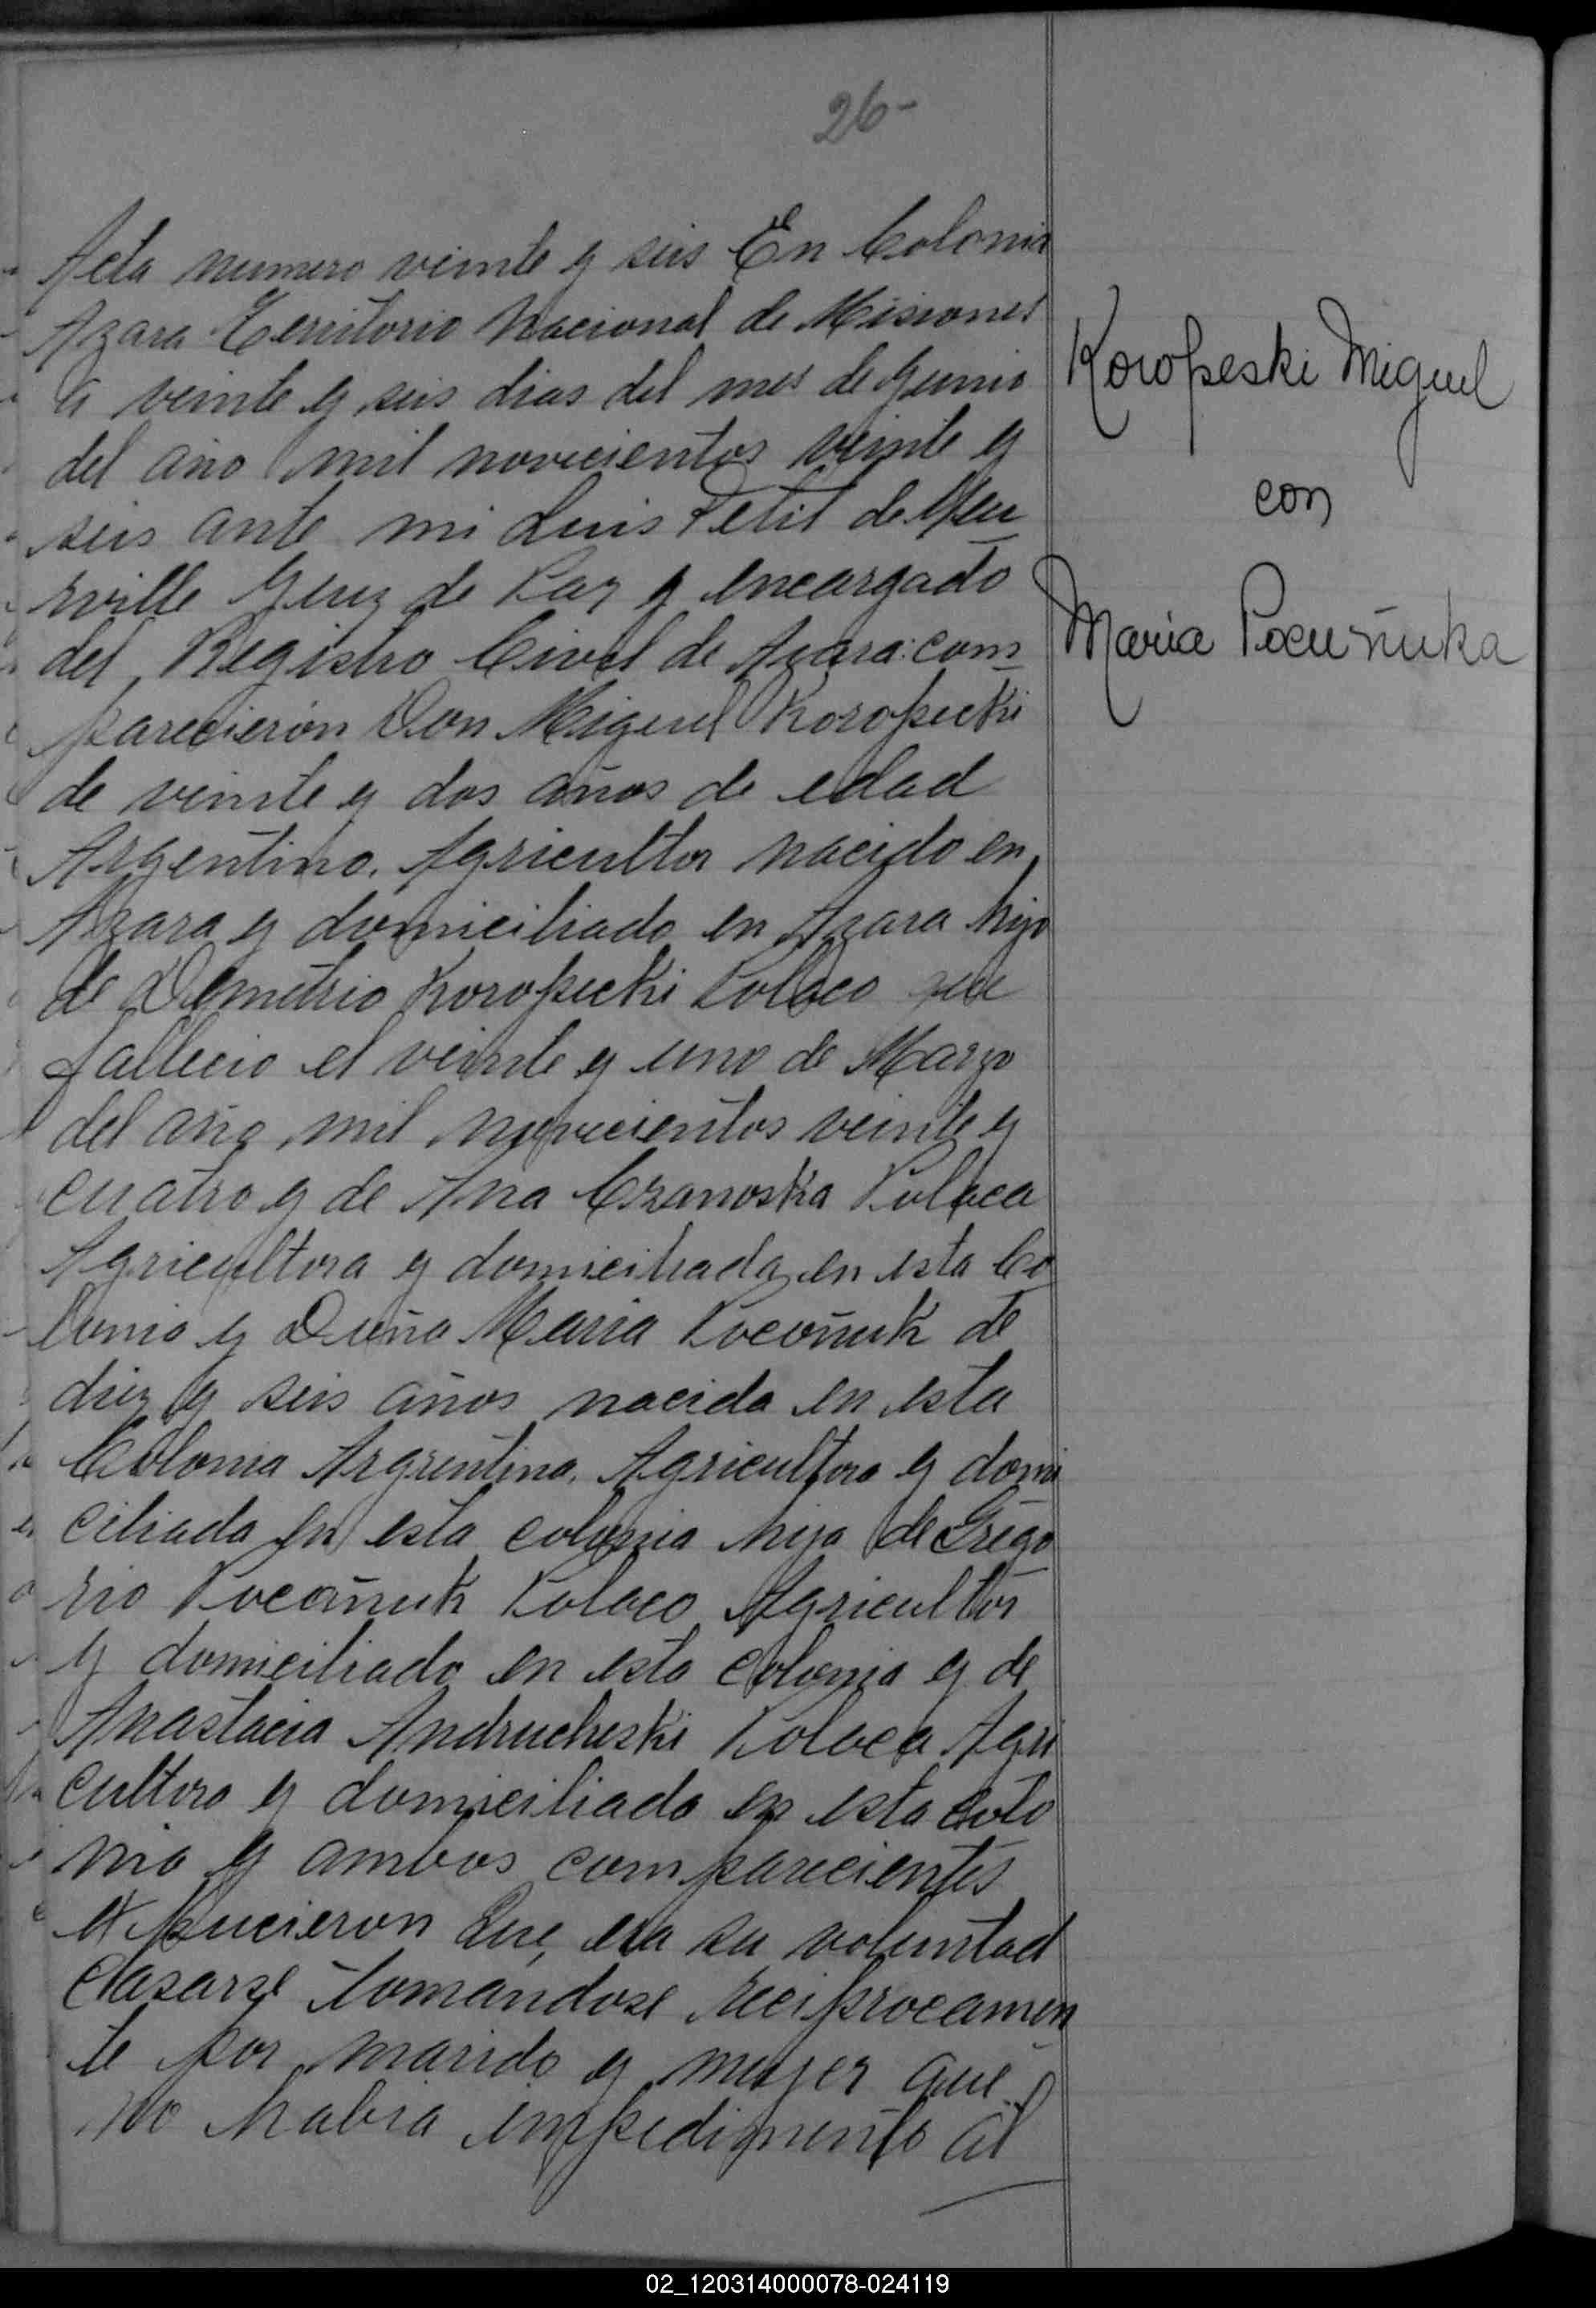 26-
Acta numero veinte y seis En Colonia
Azara Territorio Nacional de Misiones
a veinte y seis dias del mes de Junio
del año mil novecientos veinte y
seis ante mi Luis Petit de Meu
rville Juez de Paz y encargado
del Registro Civil de Azara: com
parecieron Don Miguel Koropecki
de veinte y dos años de edad
Argentino. Agricultor nacido en
Azara y domiciliado en Azara hijo
de Demetrio Koropecki Polaco que
fallecio el veinte y uno de Marzo
del año mil novecientos veinte y
cuatro y de Ana Czanoska Polaca
Agricultora y domiciliada en esta Co
lonia y Doña Maria Pocoñuk de
diez y seis años nacida en esta
Colonia Argentina. Agricultora y domi
ciliada en esta colonia hija de Grego
rio Pocoñuk Polaco Agricultor
y domiciliado en esta colonia y de
Anastacia Andrucheski Polaca Agri
cultora y domiciliada en esta colo
nia y ambos comparecientes
expucieron Que era su voluntad
Casarse tomandose reciprocamen
te por marido y mujer que
no habia impedimento al
Koropeski Miguel
con
Maria Pocuñuka
02_120314000078-024119